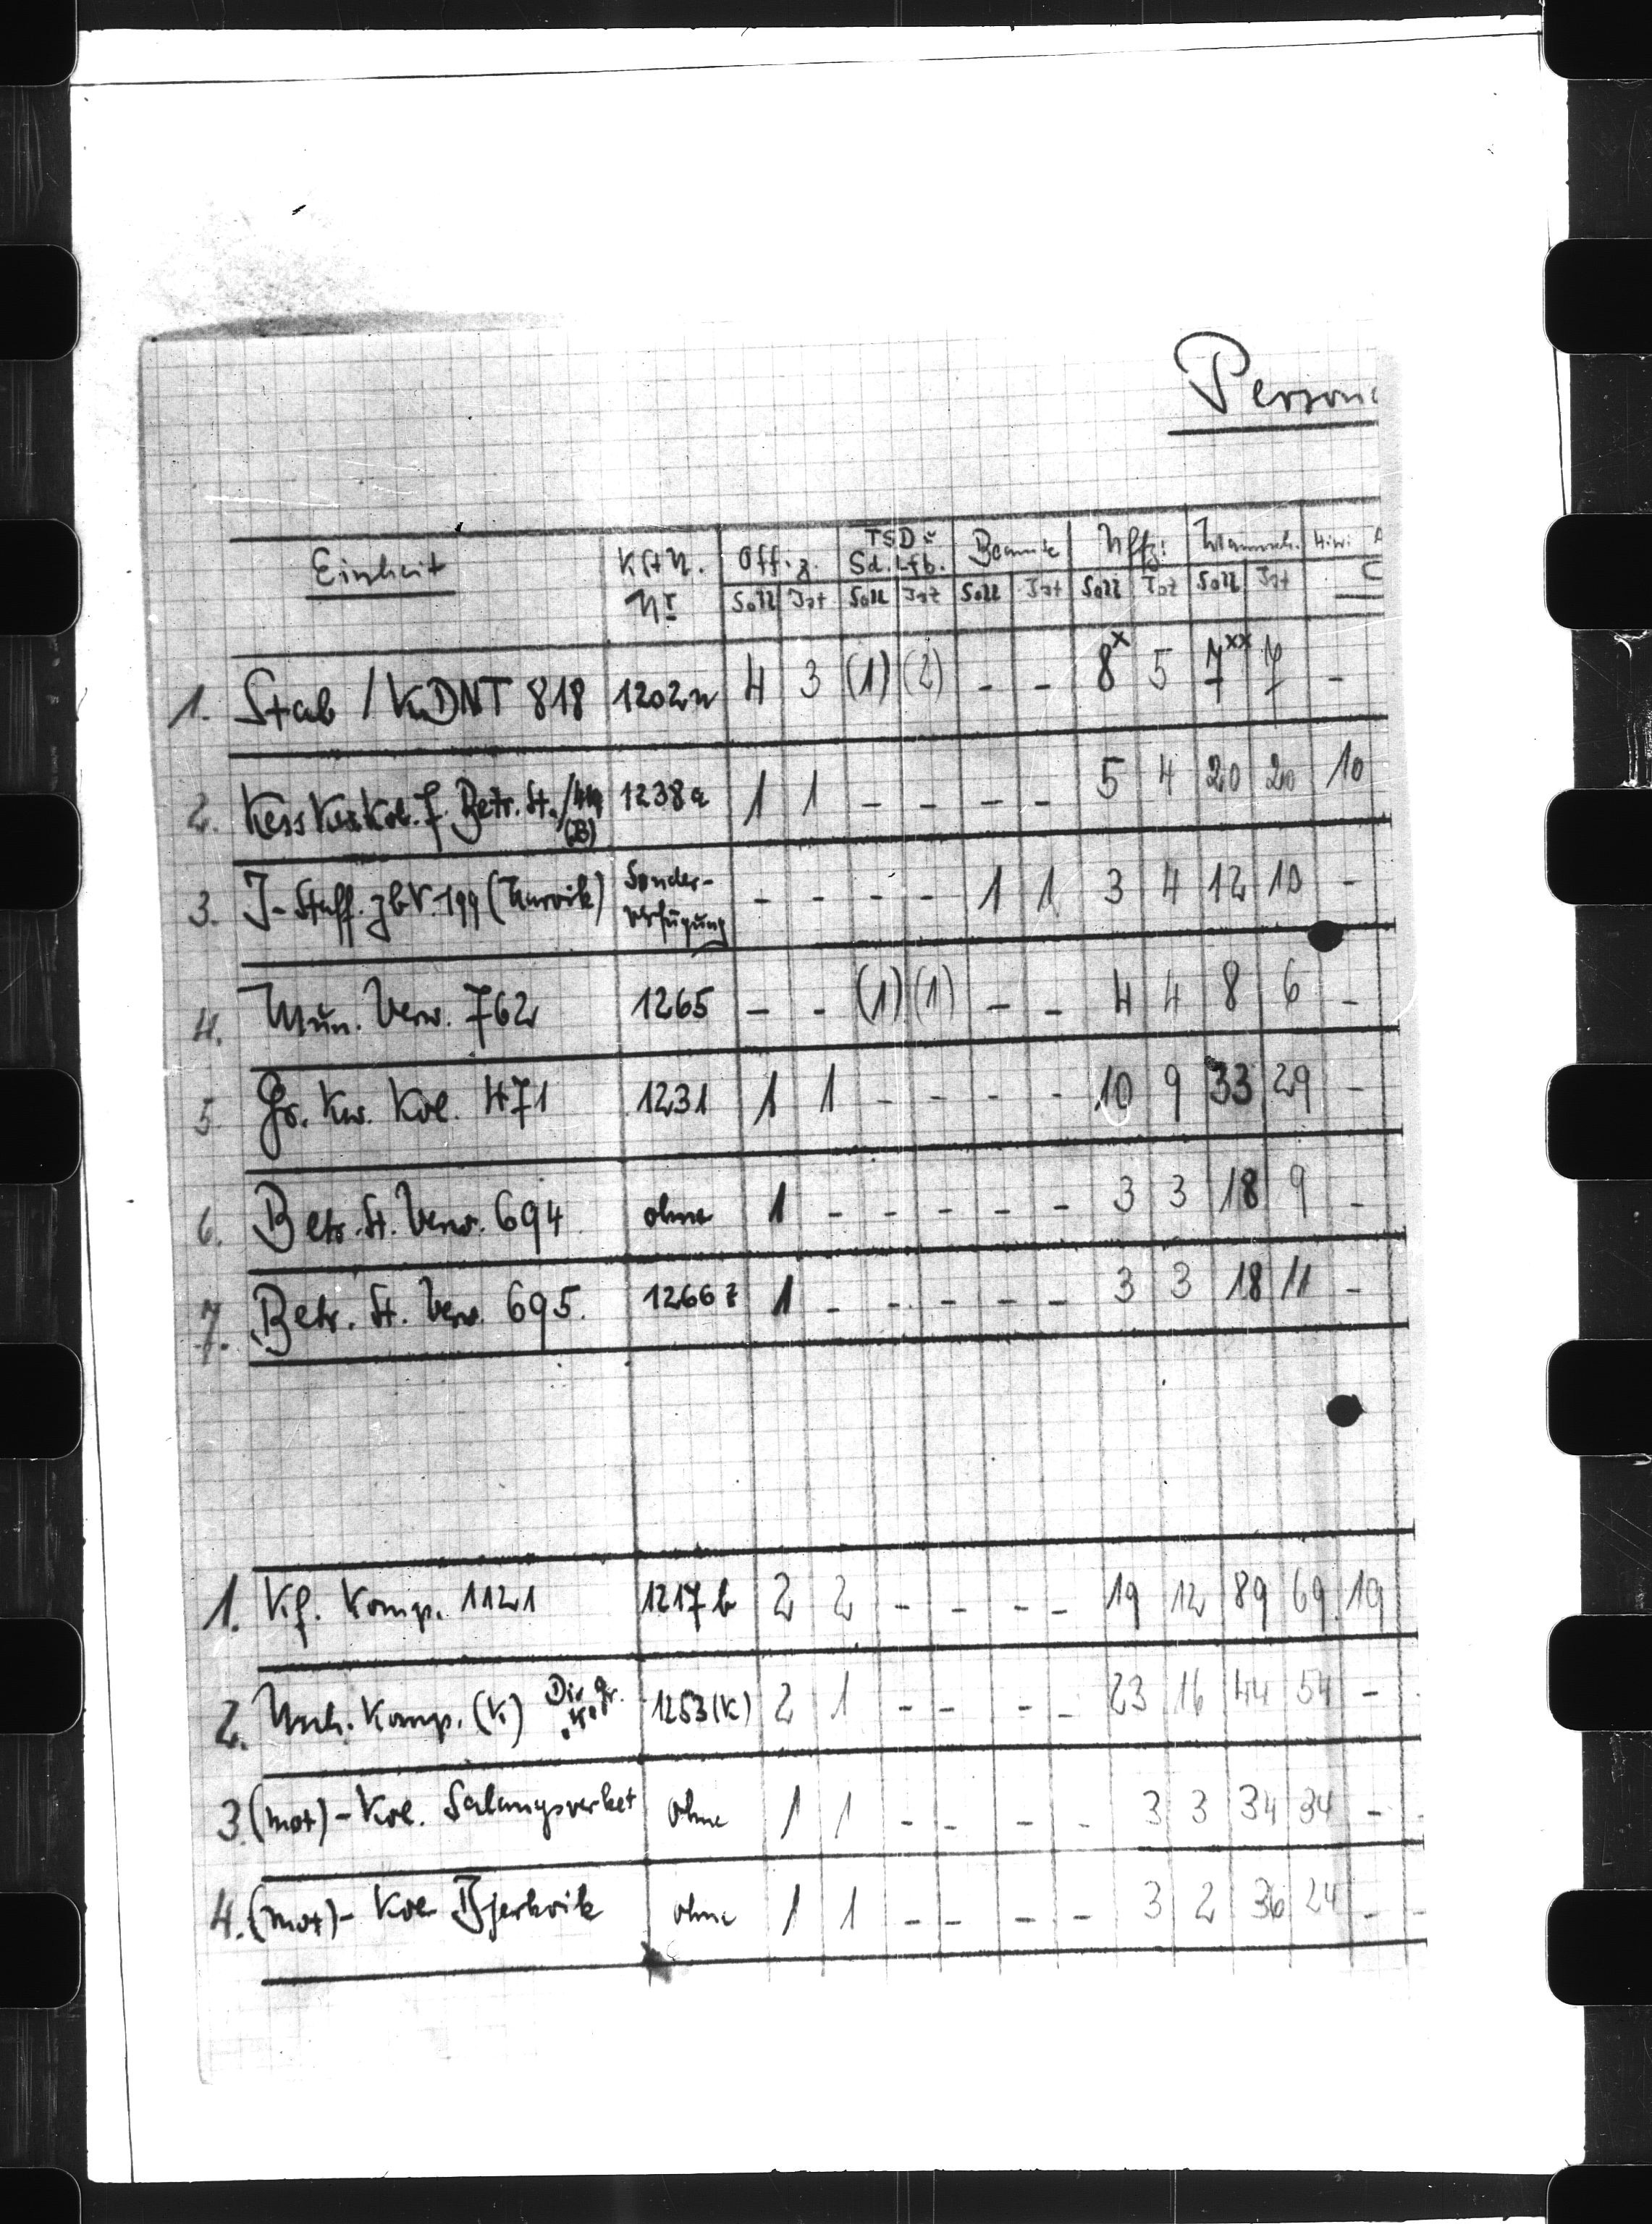 Person
Einheit K.St.N. Nr Offiz. TSD u. Sd.Lfb. Beamte Uffz. Mannsch. Hiwi
Soll Ist Soll Ist Soll Ist Soll Ist Soll Ist
1. Stab / KDNT 818 1202n 4 3 (1) (2) - - 8x 5 7xx 7 -
2. Kol. f. Betr. St. (B) 1238a 1 1 - - - - 5 4 20 20 10
3. J-Staff. zbV. 199 (Narvik) Sonder-verfügung - - - - 1 1 3 4 12 10 -
4. Mun. Verw. 762 1265 - - (1) (1) - - 4 4 8 6 -
5. Gr. Kw. Kol. 471 1231 1 1 - - - - 10 9 33 29 -
6. Betr. St. Verw. 694 ohne 1 - - - - - 3 3 18 9 -
7. Betr. St. Verw. 695. 1266z 1 - - - - - 3 3 18 11 -
1. Kf. Komp. 1121 1217b 2 2 - - - - 19 12 89 69 19
2. Nach. Komp. (K) Div. Gr. "K" 1253(K) 2 1 - - - - 23 16 44 54 -
3. (mot)-Kol. Salangsverket ohne 1 1 - - - - 3 3 34 34 -
4. (mot)-Kol. Bjerkvik ohne 1 1 - - - - 3 2 36 24 -